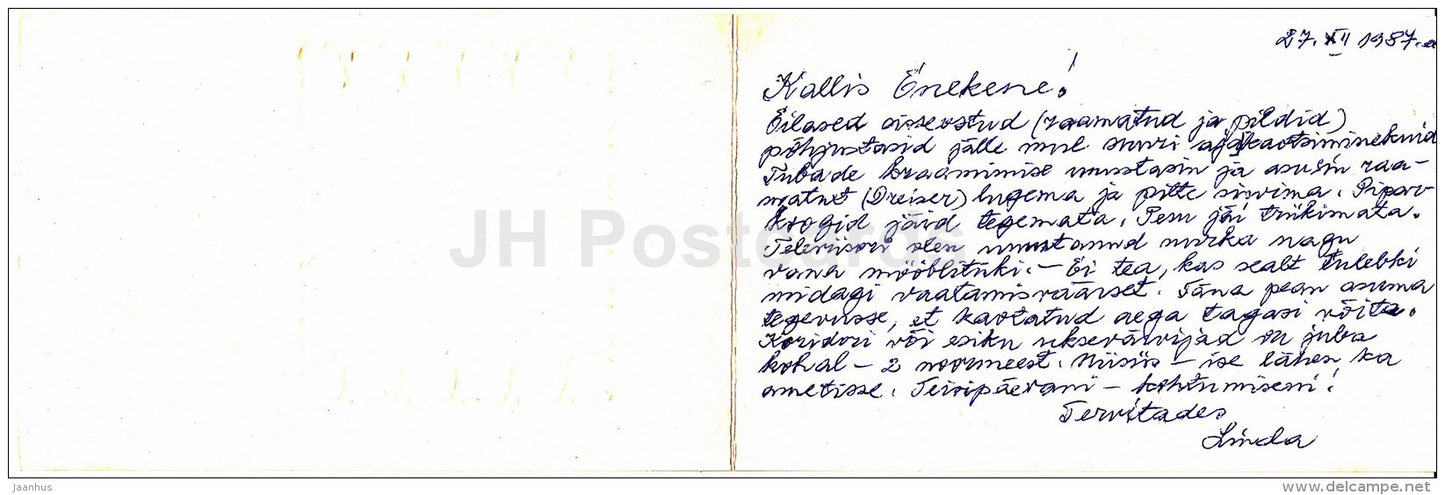 27. XII 1987. a
Kallis Õnekene!
Eilased sisseostud (raamatud ja pildid)
põhjustasid jälle mul suuri ajakaotsiminekuid
Tubade kraamimise unustasin ja asusin raa-
matut (Dreiser) lugema ja pilte sirvima. Pipar-
koogid jäid tegemata. Pesu jäi triikimata.
Televiisori olen unustanud nurka nagu
vana mööblitüki. – Ei tea, kas sealt tulebki
midagi vaatamisväärset. Täna pean asuma
tegevusse, et kaotatud aega tagasi võita.
Koridori või esiku uksevärvijad on juba
kohal – 2 noormeest. Niisiis – ise lähen ka
ametisse. Teisipäevani – kohtumiseni!
Tervitades
Linda
JH Postcards
Jaanhus
www.delcampe.net